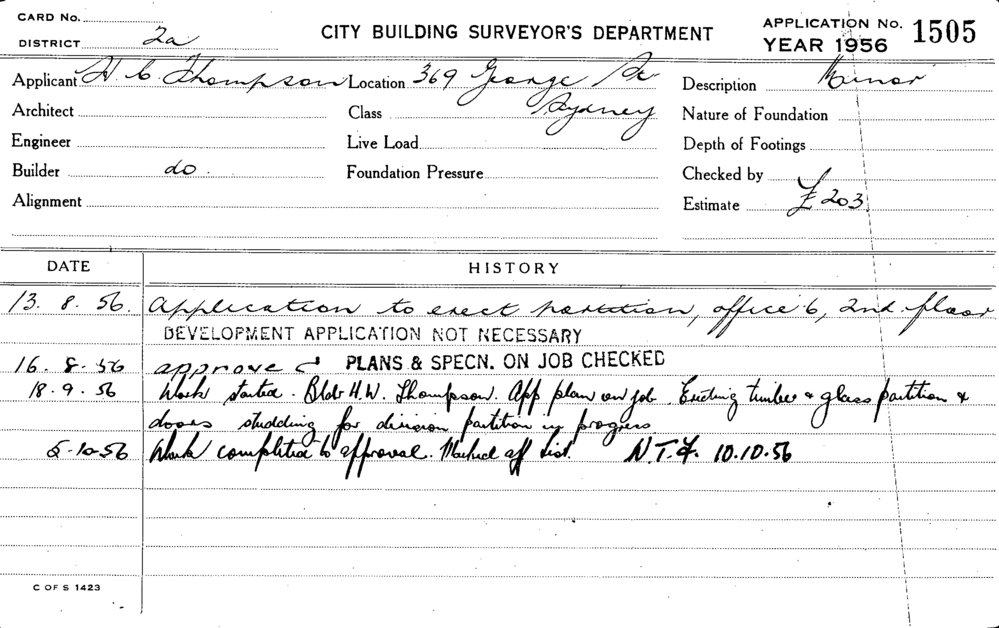 CARD No.
DISTRICT 2a
CITY BUILDING SURVEYOR'S DEPARTMENT
APPLICATION No. 1505
YEAR 1956
Applicant H. C. Thompson Location 369 George St Description Minor
Architect Class Sydney Nature of Foundation
Engineer Live Load Depth of Footings
Builder do. Foundation Pressure Checked by
Alignment Estimate £203
DATE HISTORY
13. 8. 56. Application to erect partition, office 6, 2nd floor
DEVELOPMENT APPLICATION NOT NECESSARY
16. 8. 56 approved PLANS & SPECN. ON JOB CHECKED
18. 9. 56 Work started. Bldr H.W. Thompson. App plan on job. Existing timber & glass partition &
doors studding for division partition in progress
5-10-56 Work completed to approval. Marked off list. N.T.F. 10.10.56
C OF S 1423